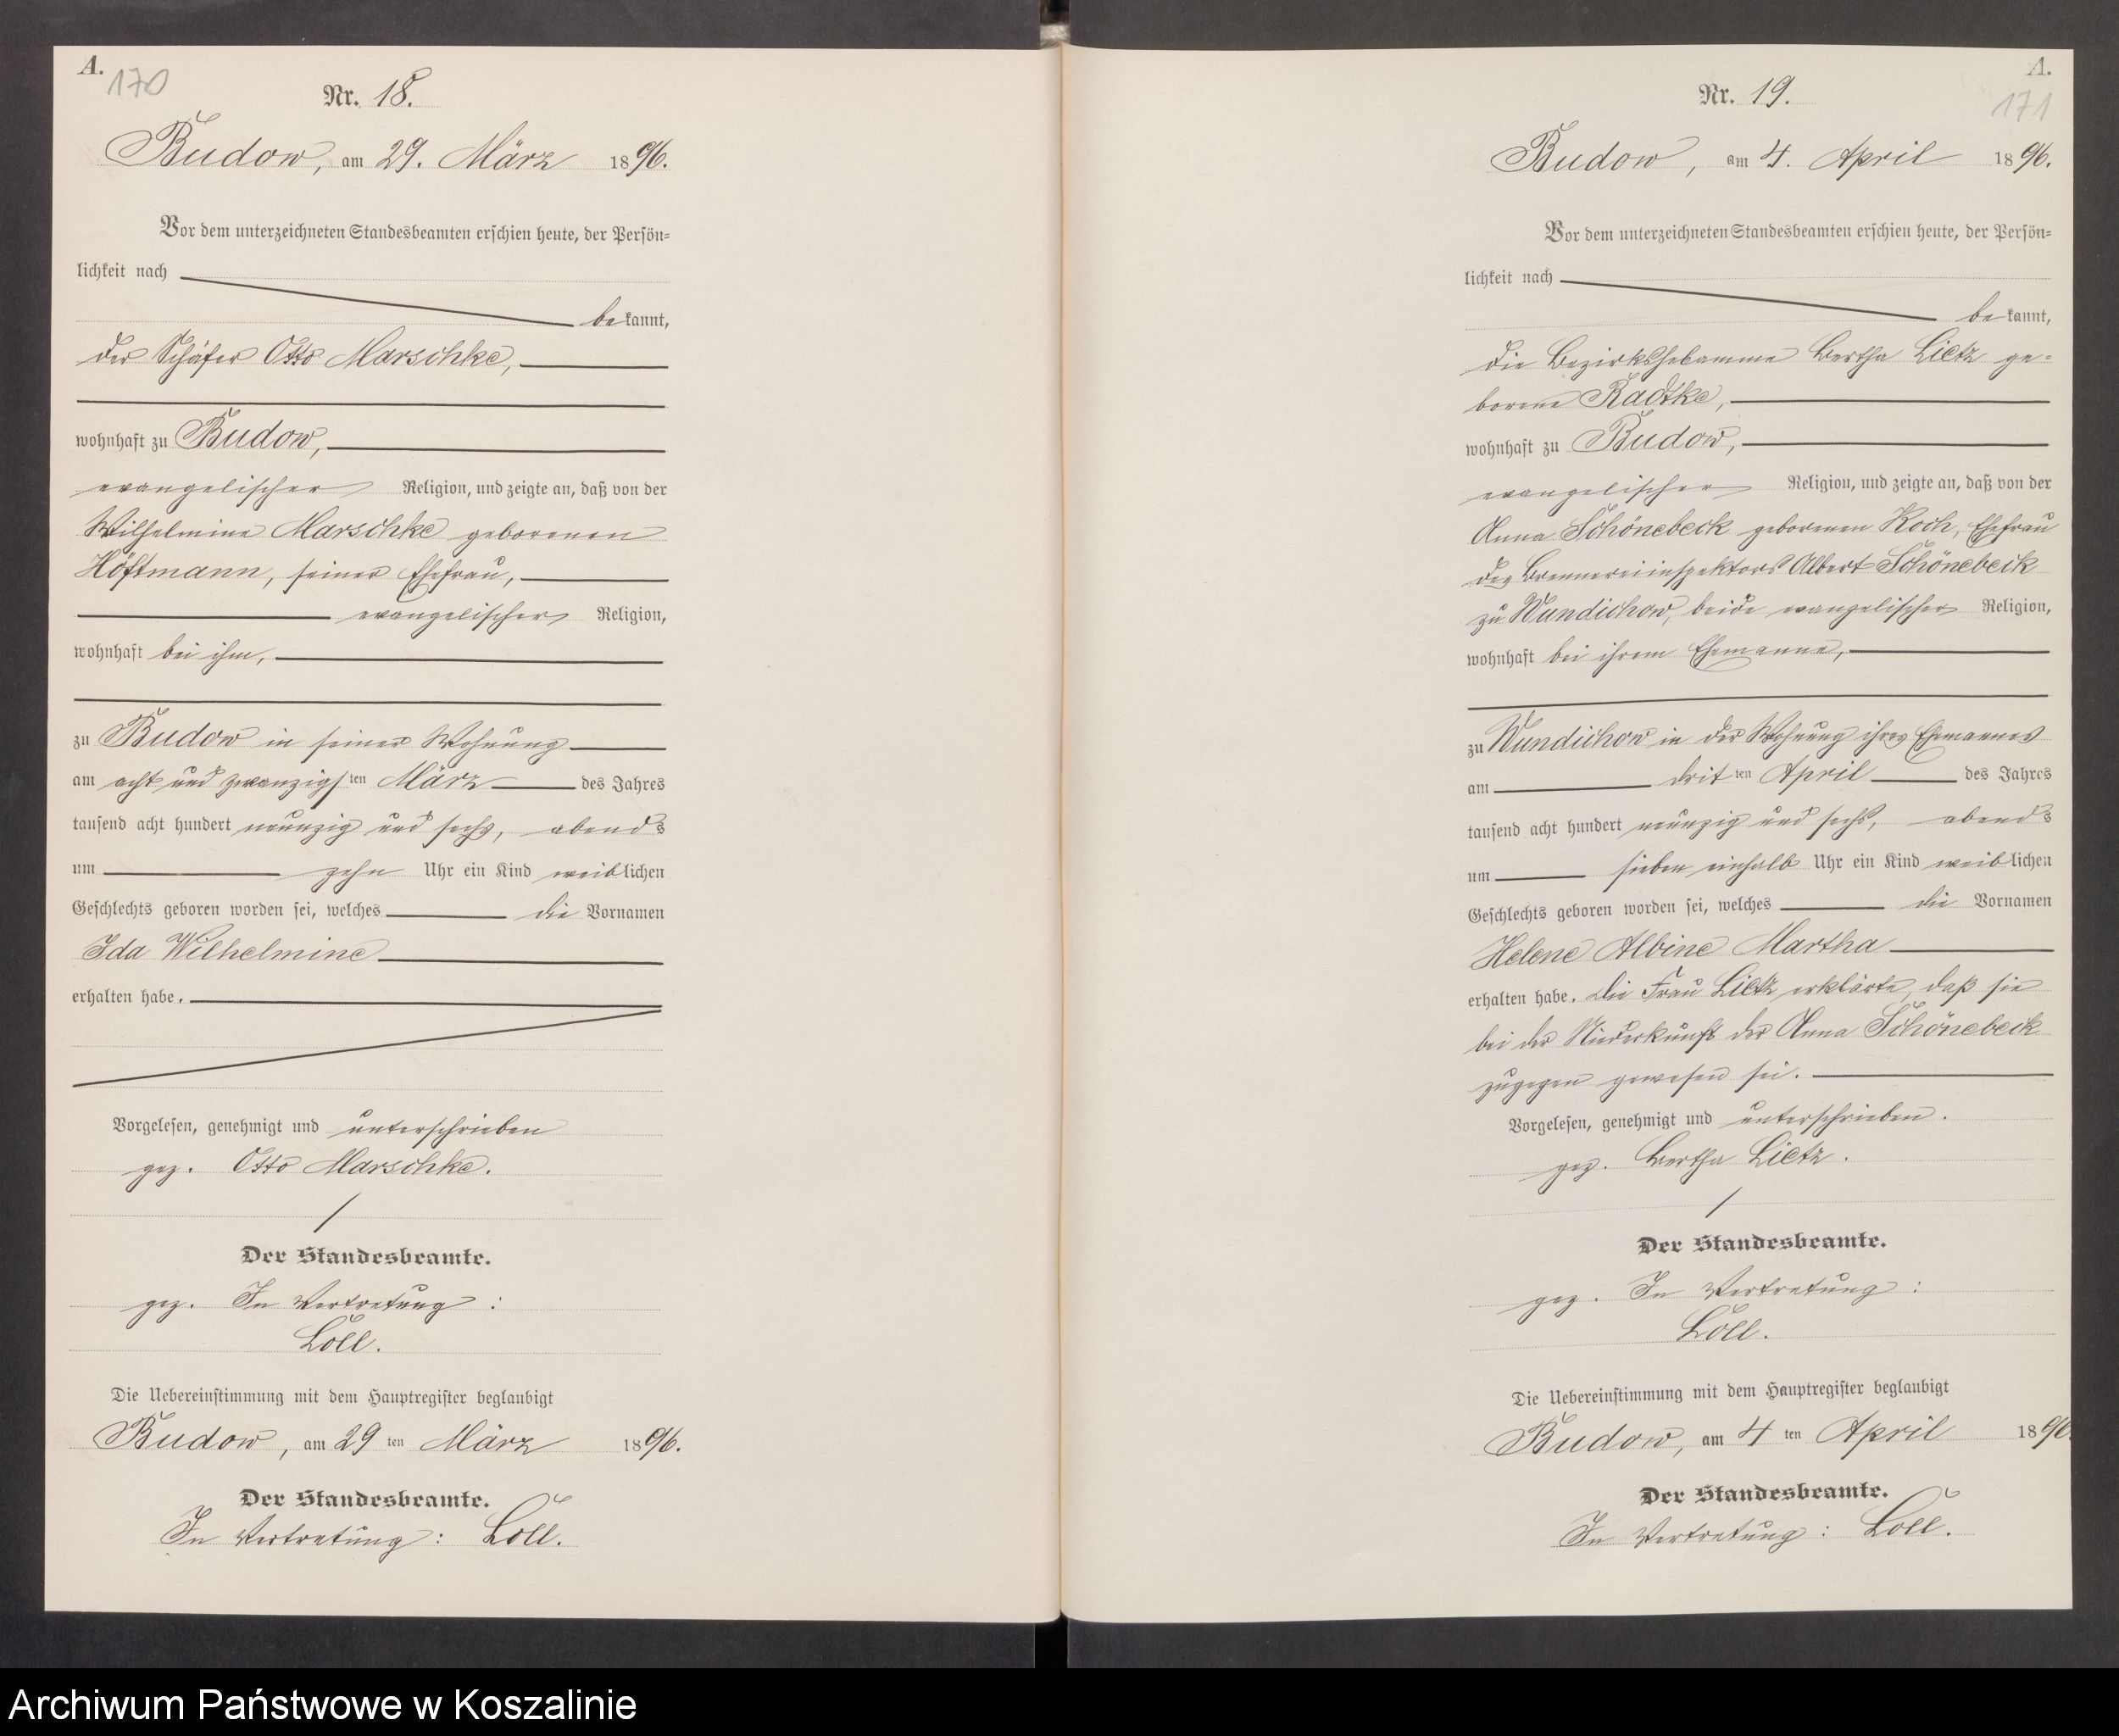 A.
170
Nr. 18.
Budow, am 29. März 1896.
Vor dem unterzeichneten Standesbeamten erschien heute, der Persön-
lichkeit nach
bekannt,
der Schäfer Otto Marschke,
wohnhaft zu Budow,
evangelischer Religion, und zeigte an, daß von der
Wilhelmine Marschke geborenen
Höftmann, seiner Ehefrau,
evangelischer Religion,
wohnhaft bei ihm,
zu Budow in seiner Wohnung
am acht und zwanzigsten März des Jahres
tausend acht hundert neunzig und sechs, abends
um zehn Uhr ein Kind weiblichen
Geschlechts geboren worden sei, welches die Vornamen
Ida Wilhelmine
erhalten habe.
Vorgelesen, genehmigt und unterschrieben
gez. Otto Marschke.
Der Standesbeamte.
gez. In Vertretung:
Loll.
Die Uebereinstimmung mit dem Hauptregister beglaubigt
Budow, am 29 ten März 1896.
Der Standesbeamte.
In Vertretung: Loll.
A.
171
Nr. 19.
Budow, am 4. April 1896.
Vor dem unterzeichneten Standesbeamten erschien heute, der Persön-
lichkeit nach
bekannt,
die Bezirkshebamme Bertha Lietz ge-
borene Radtke,
wohnhaft zu Budow,
evangelischer Religion, und zeigte an, daß von der
Anna Schönebeck geborenen Koch, Ehefrau
des Brennereiinspektors Albert Schönebeck
zu Wundichow, beide evangelischer Religion,
wohnhaft bei ihrem Ehemanne,
zu Wundichow in der Wohnung ihres Ehemannes
am dritten April des Jahres
tausend acht hundert neunzig und sechs, abends
um sieben einhalb Uhr ein Kind weiblichen
Geschlechts geboren worden sei, welches die Vornamen
Helene Albine Martha
erhalten habe. Die Frau Lietz erklärte, daß sie
bei der Niederkunft der Anna Schönebeck
zugegen gewesen sei.
Vorgelesen, genehmigt und unterschrieben.
gez. Bertha Lietz.
Der Standesbeamte.
gez. In Vertretung:
Loll.
Die Uebereinstimmung mit dem Hauptregister beglaubigt
Budow, am 4 ten April 1896
Der Standesbeamte.
In Vertretung: Loll.
Archiwum Państwowe w Koszalinie